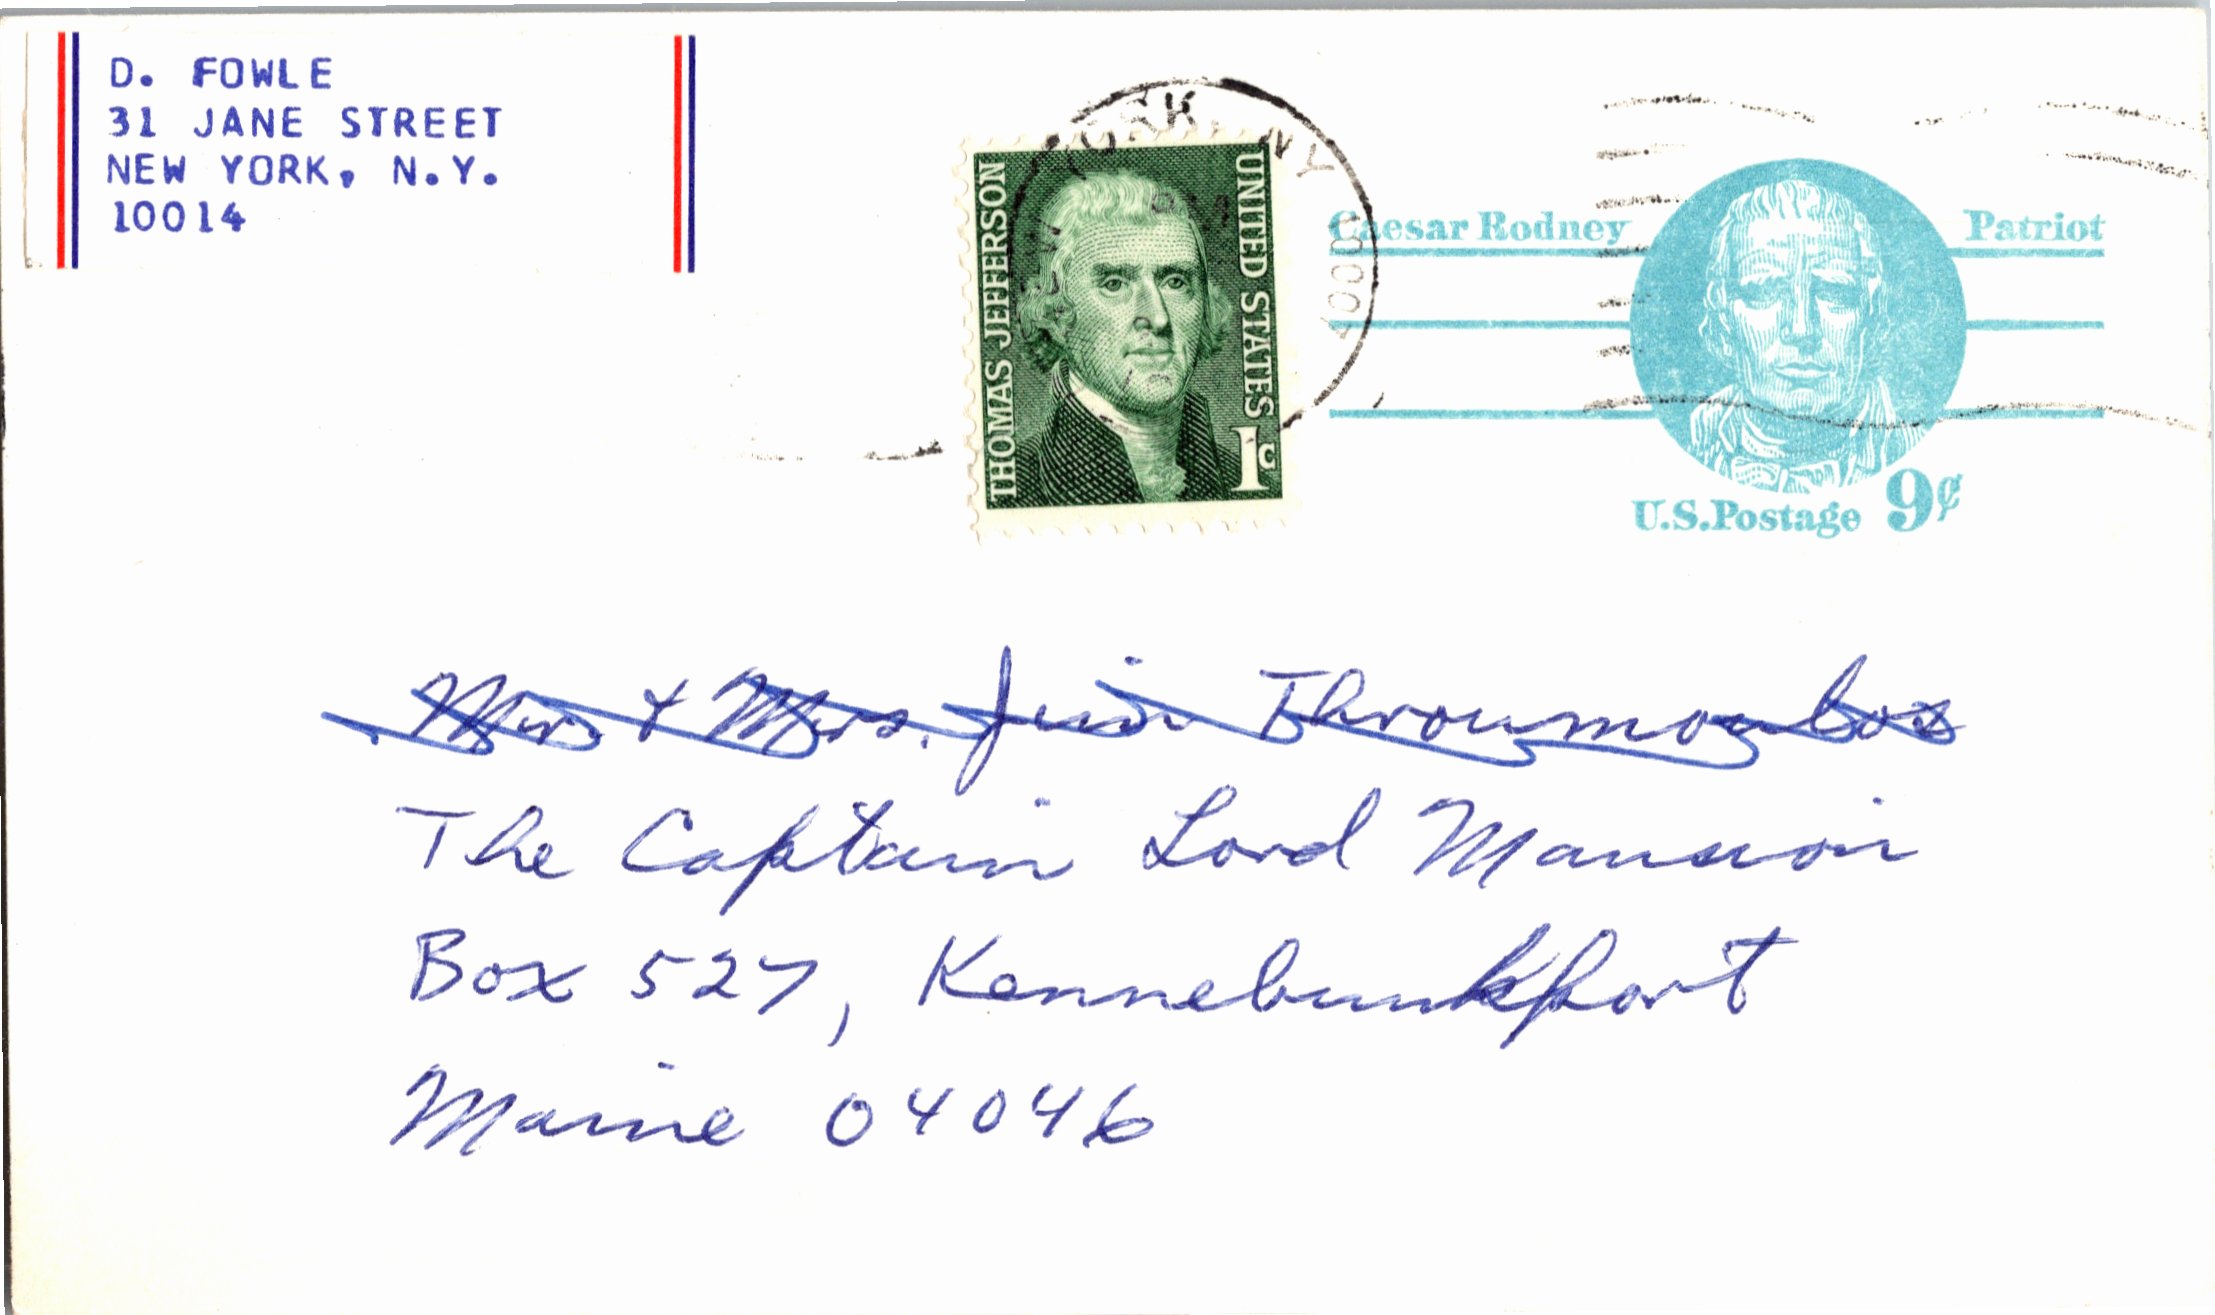 D. FOWLE
31 JANE STREET
NEW YORK, N.Y.
10014
NEW YORK NY
THOMAS JEFFERSON
UNITED STATES
1c
Caesar Rodney Patriot
U.S.Postage 9¢
Mr. & Mrs. Jim Throumoulos
The Captain Lord Mansion
Box 527, Kennebunkport
Maine 04046